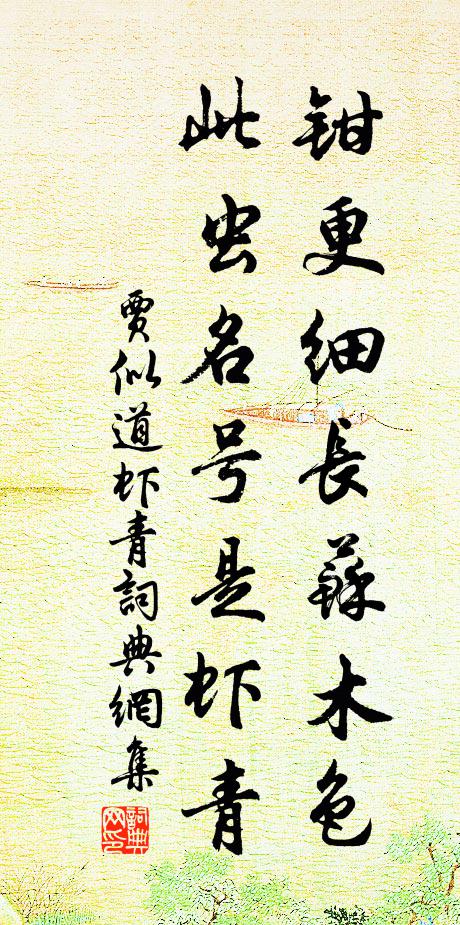 钳更细長蘇木色
此虫名号是虾青
賈似道虾青詞典網集
詞典網印